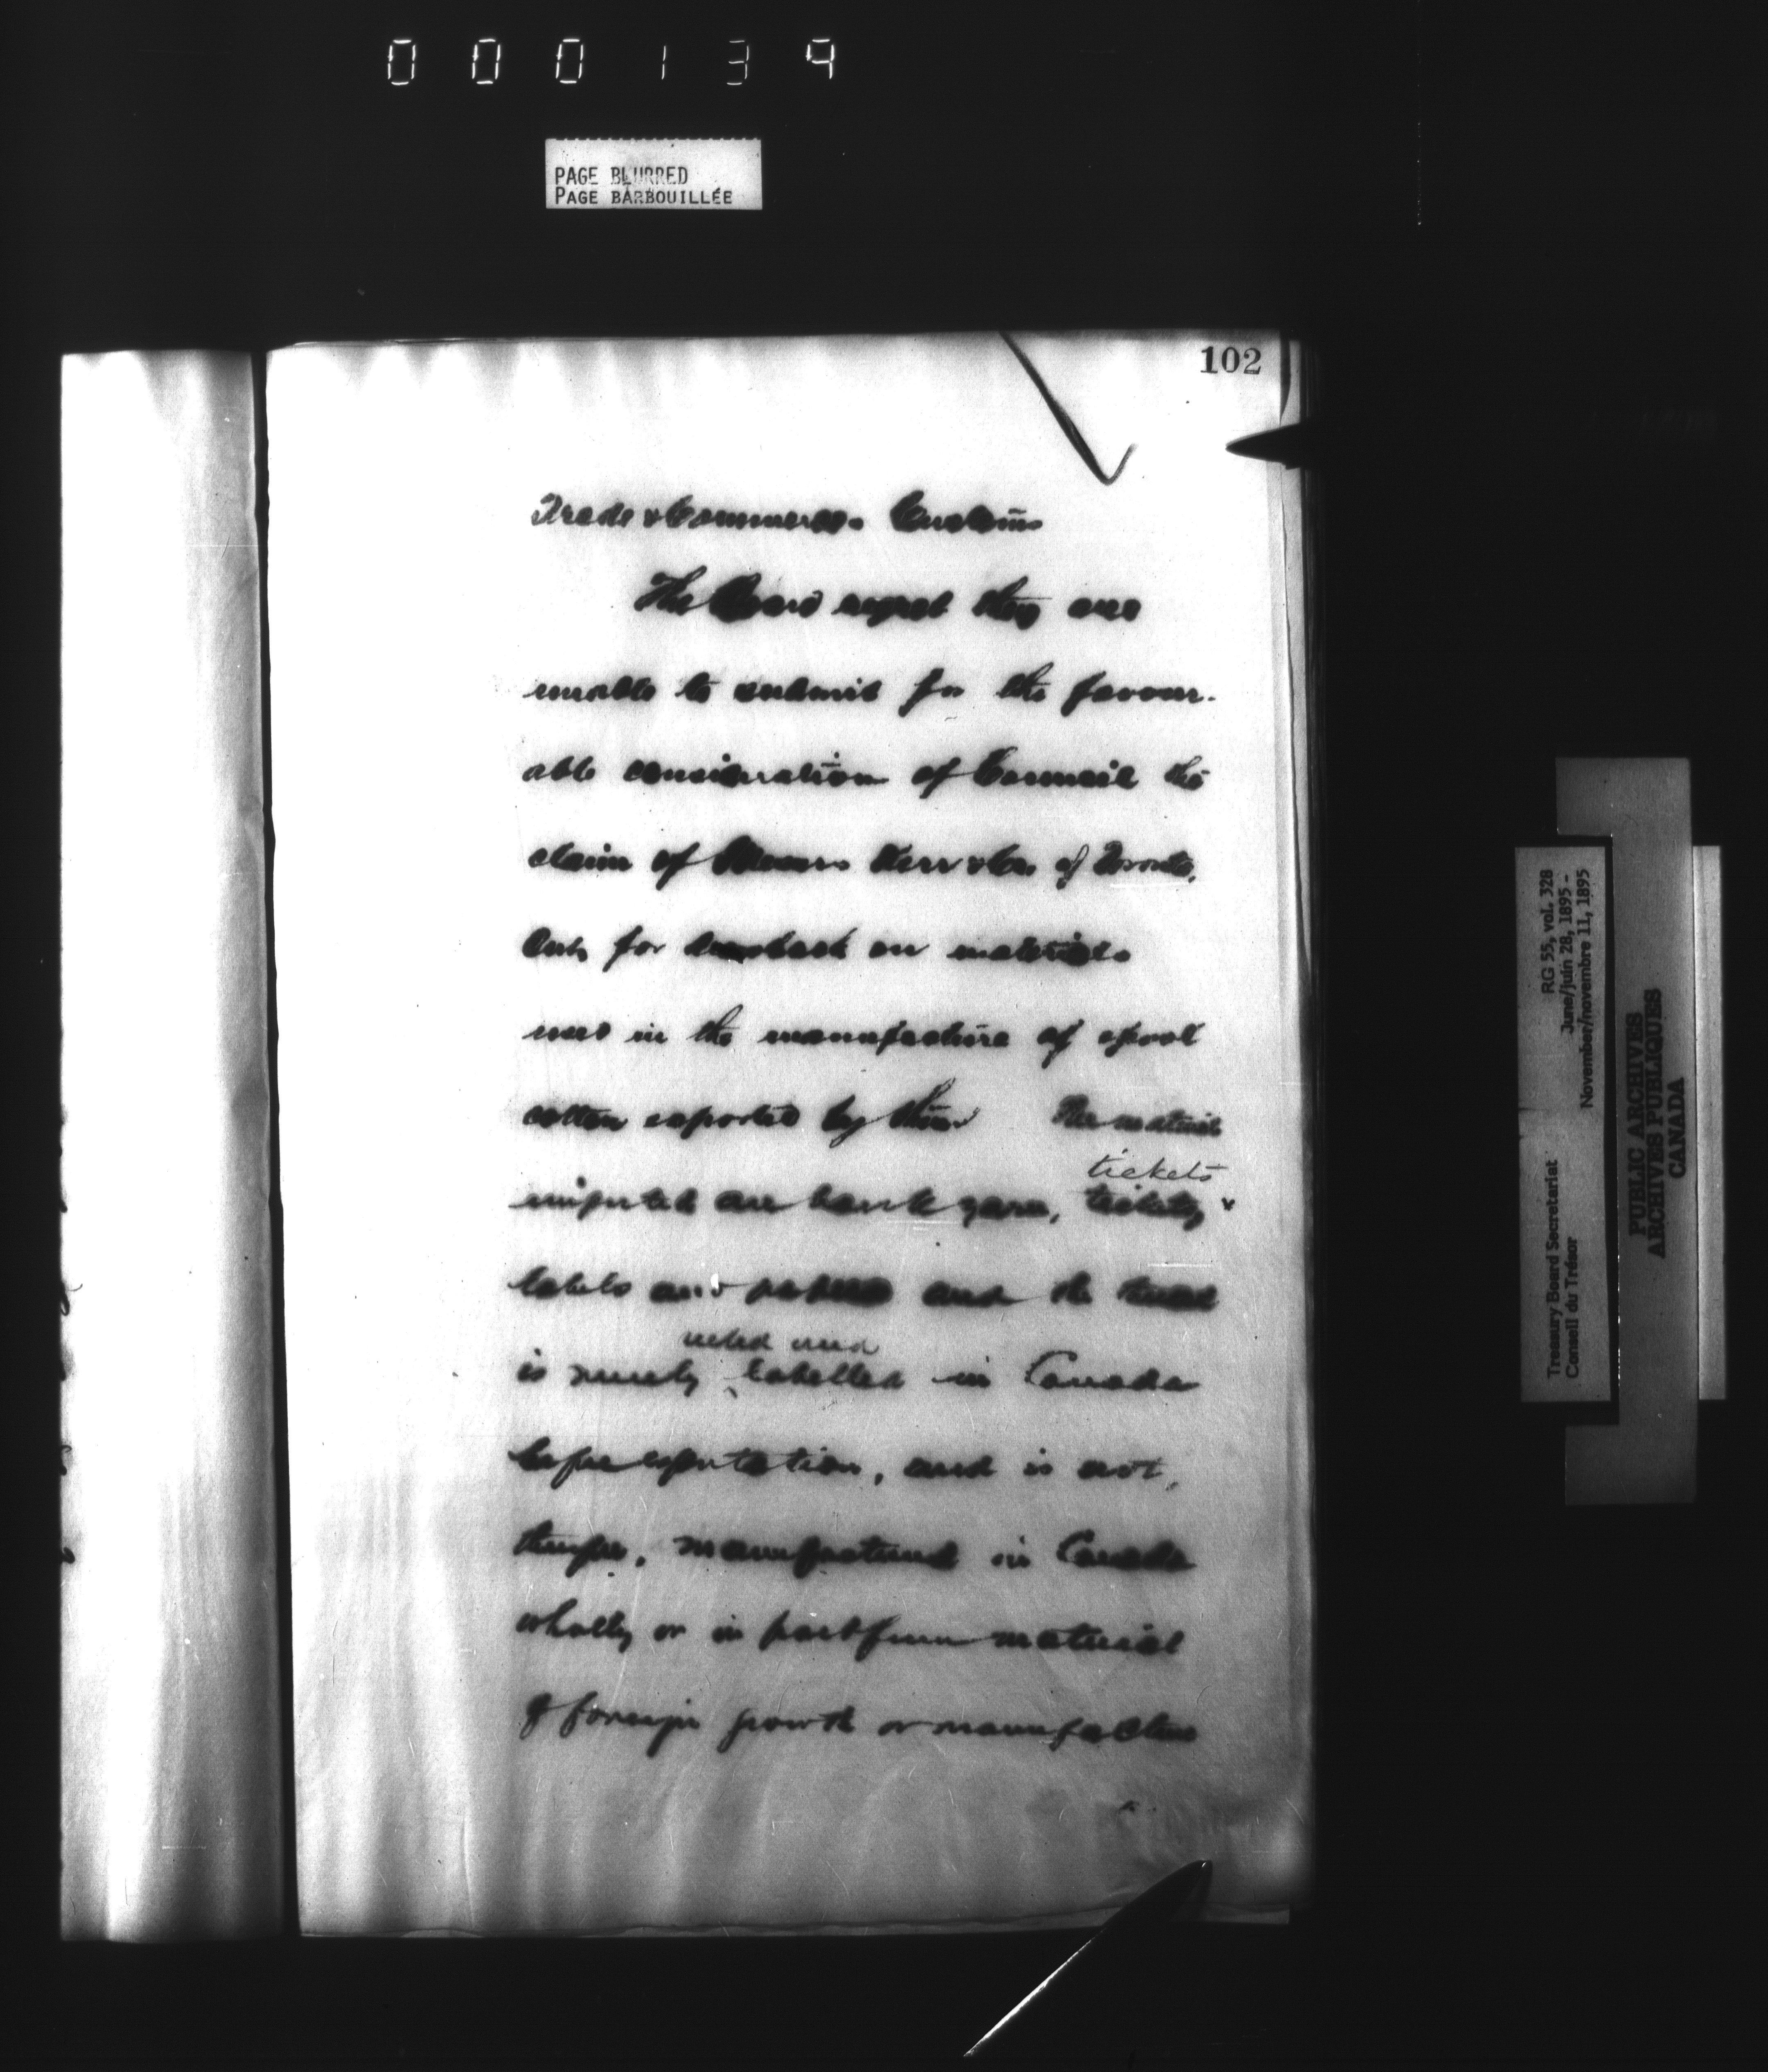 000139
PAGE BLURRED
PAGE BARBOUILLÉE
102
Trade & Commerce. Customs
The Board regret they are
unable to submit for the favour-
able consideration of Council the
claim of Messrs Kerr & Co. of Toronto,
Ont, for drawback on materials
used in the manufacture of spool
cotton exported by them The material
imported are hank yarn, tickets
tickets &
labels and and the thread
is merely labelled in Canada
before exportation, and is not,
therefore, manufactured in Canada
wholly or in part from material
of foreign growth or manufacture
Treasury Board Secretariat RG 55, vol. 328
Conseil du Trésor June/juin 28, 1895 -
November/novembre 11, 1895
PUBLIC ARCHIVES
ARCHIVES PUBLIQUES
CANADA